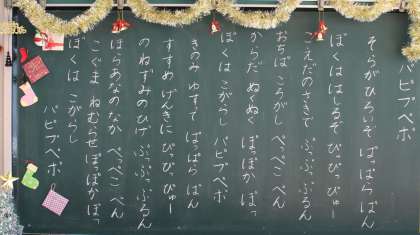 パピプペポ
そらがひろいぞ ぱっぱら ぱん
ぼくは はしるぞ ぴっぴっ ぴゅー
こえだのさきで ぷっぷっ ぷるん
おちば ころがし ぺっぺこ ぺん
からだ ぬぬっ ぽっぽか ぽっ
ぼくは こがらし パピプペポ
きのみ ゆすって ぱっぱら ぱん
すすめ げんきに ぴっぴっ ぴゅー
のねずみのひげ ぷっぷっ ぷるん
ほらあなのなか ぺっぺこ ぺん
こぐま ねむらせ ぽっぽか ぽっ
ぼくは こがらし パピプペポ